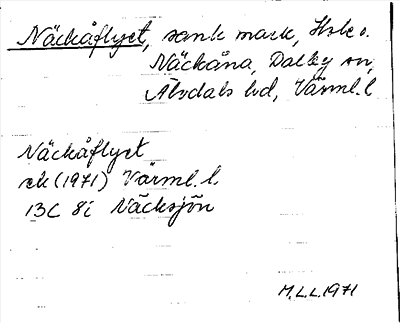 Näckåflyet, sank mark, Hslc o.
Näckåna, Dalby sn,
Älvdals hd, Värml. l
Näckåflyet
ek (1971) Värml. l.
13C 8i Näcksjön
M.L.L. 1971